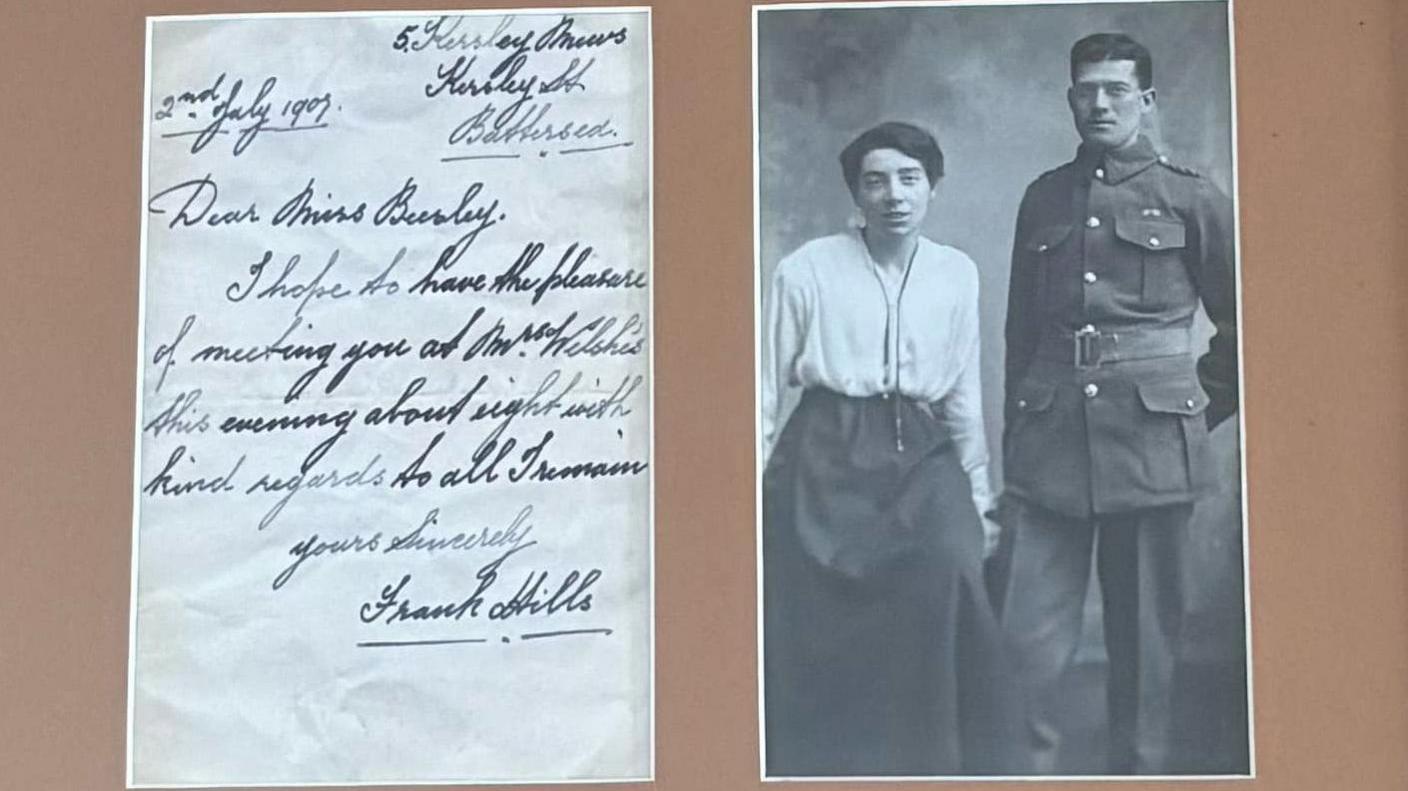 5. Kersley Mews
Kersley St
Battersea.
2nd. July 1907.
Dear Miss Beesley.
I hope to have the pleasure
of meeting you at Mrs. Welshe's
this evening about eight with
kind regards to all I remain
yours Sincerely
Frank Hills